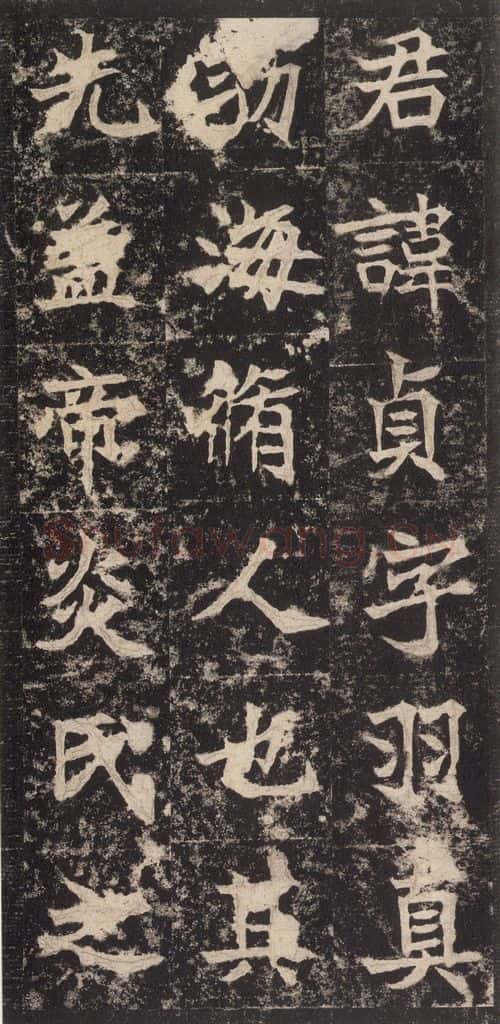 君諱貞字羽真
勃海脩人也其
先盖帝炎氏之
Shufawang.CN